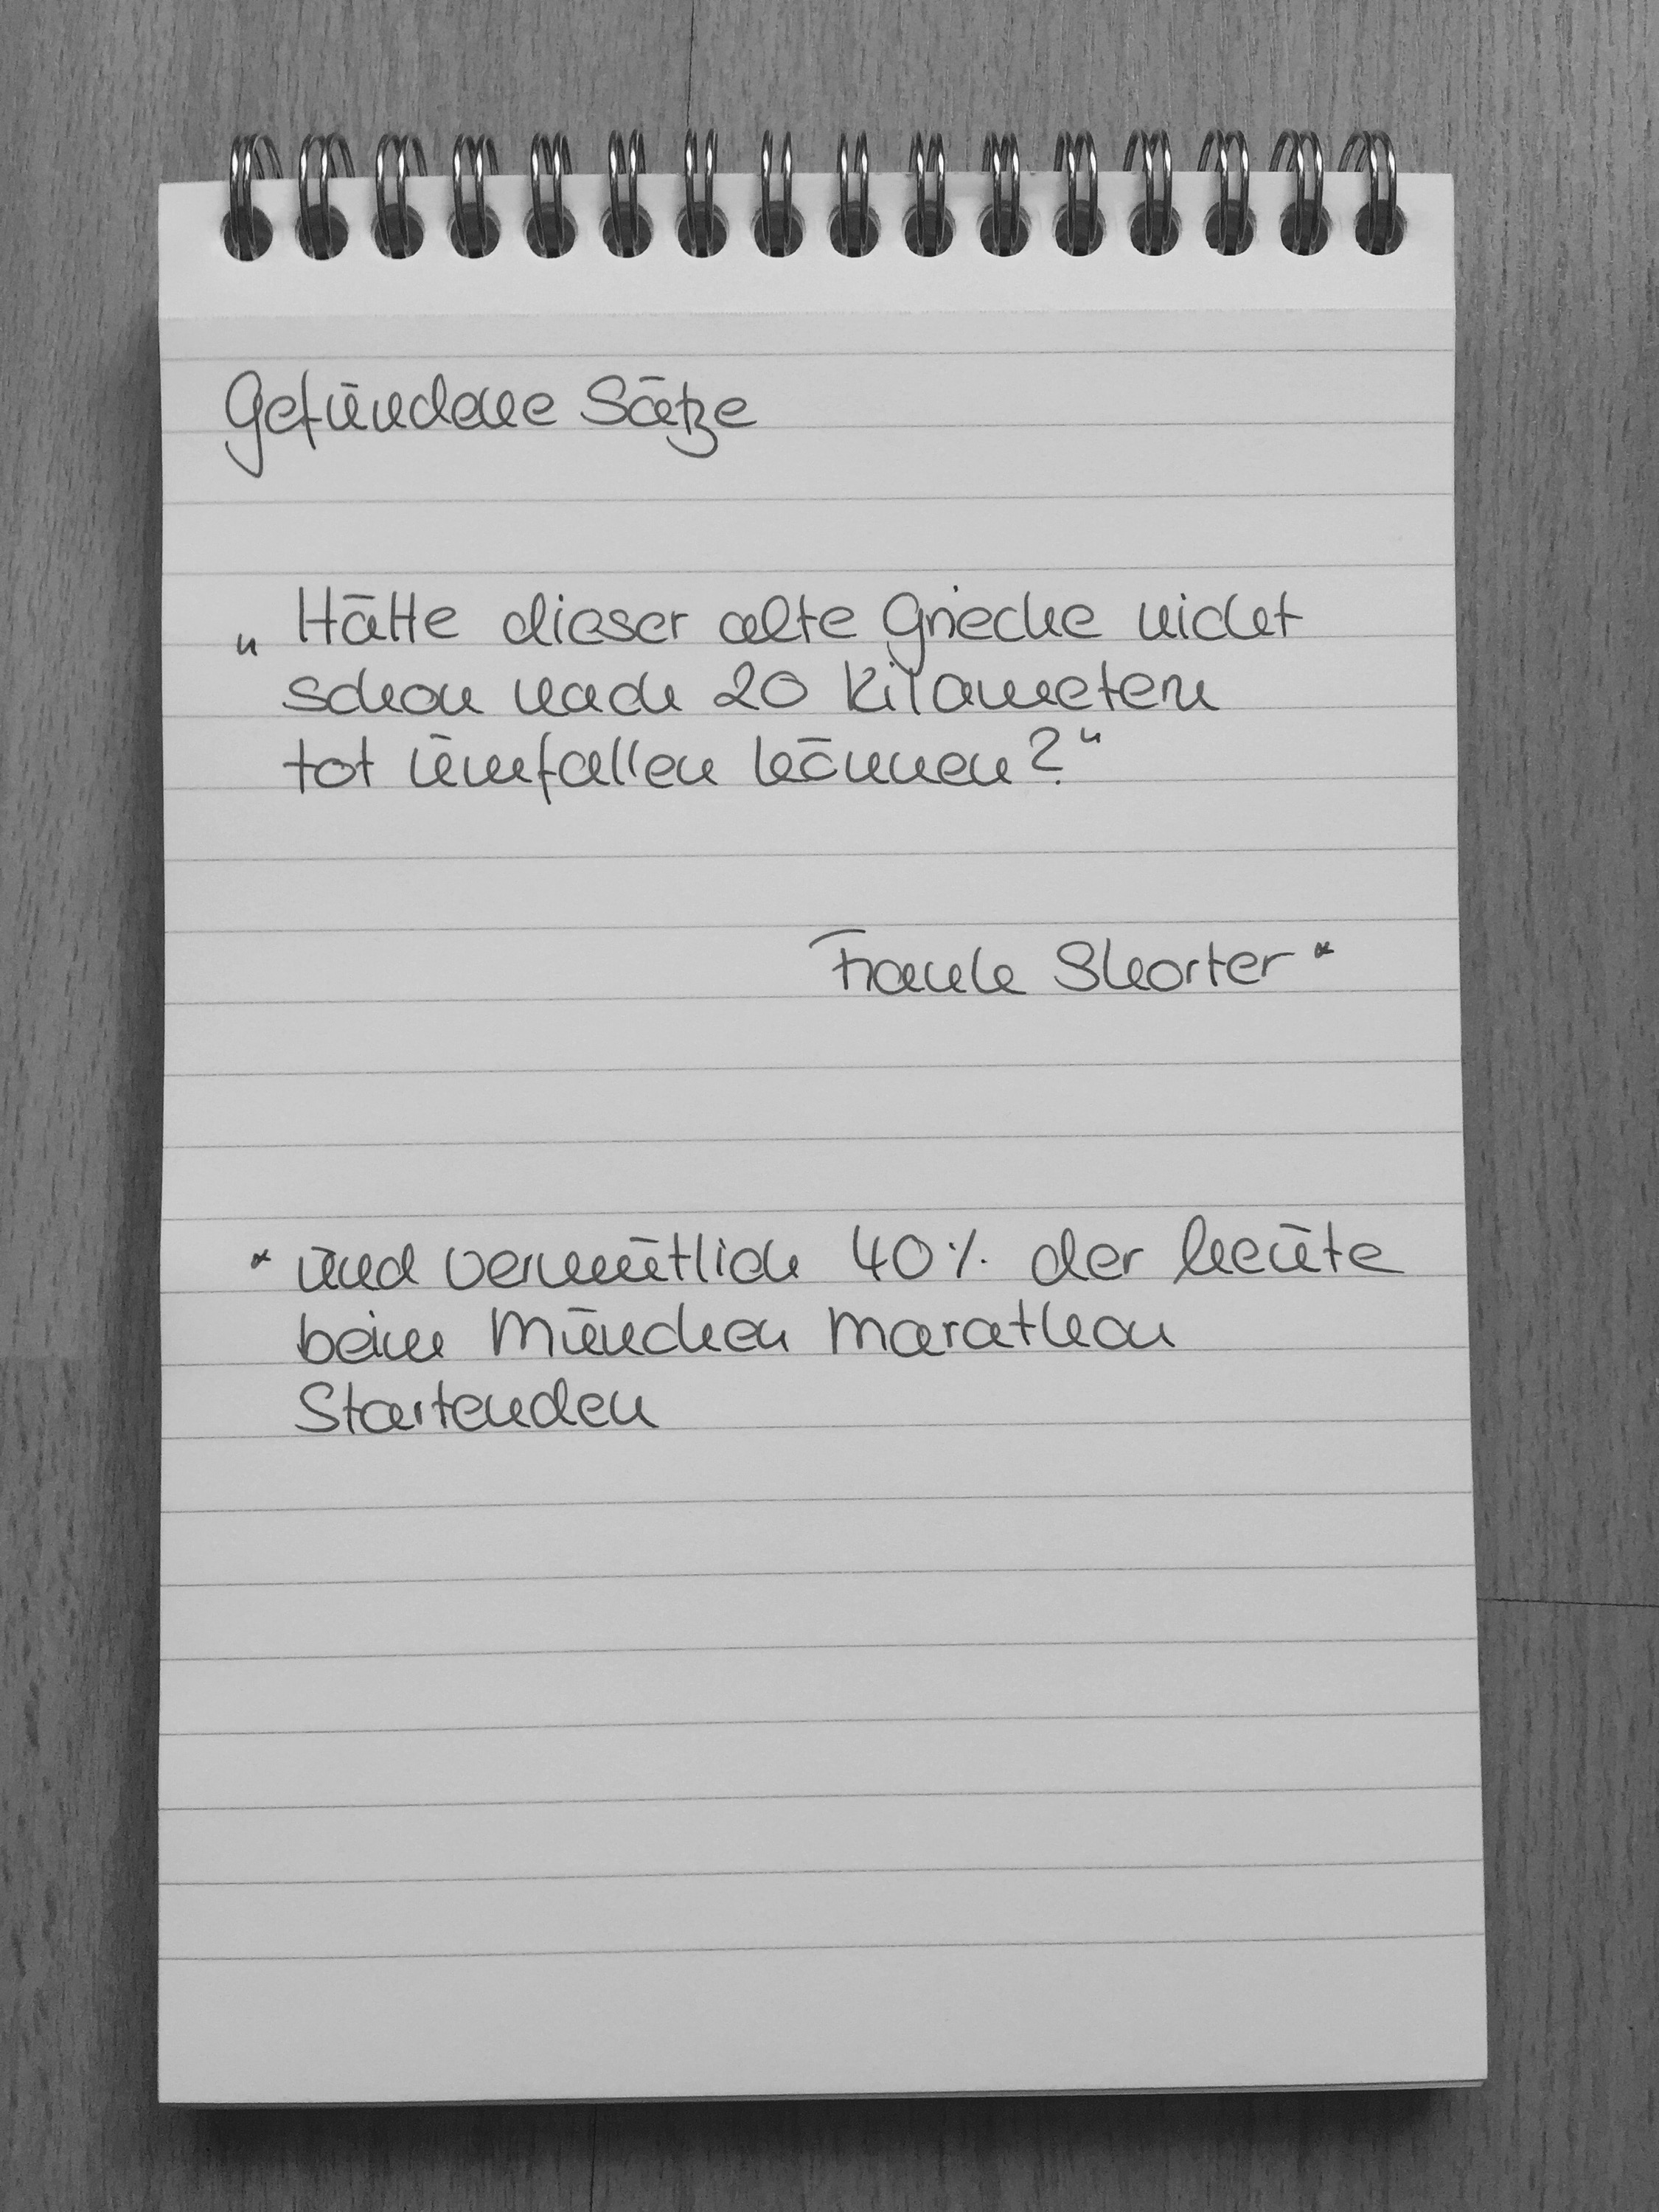 Gefundene Sätze
„Hätte dieser alte Grieche nicht
schon nach 20 Kilometern
tot umfallen können?“
Frank Shorter*
* und vermutlich 40% der heute
beim München Marathon
Startenden